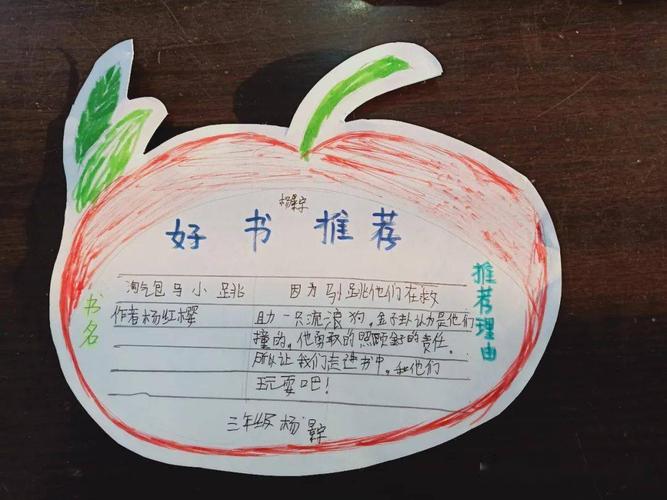 杨
好书推荐
书名
淘气包马小跳
作者杨红樱
推荐理由
因为马小跳他们在救
助一只流浪狗,金子卦认为是他们
撞的,他勇敢的照顾的责任。
所以让我们走进书中,和他们
玩耍吧!
三年级 杨